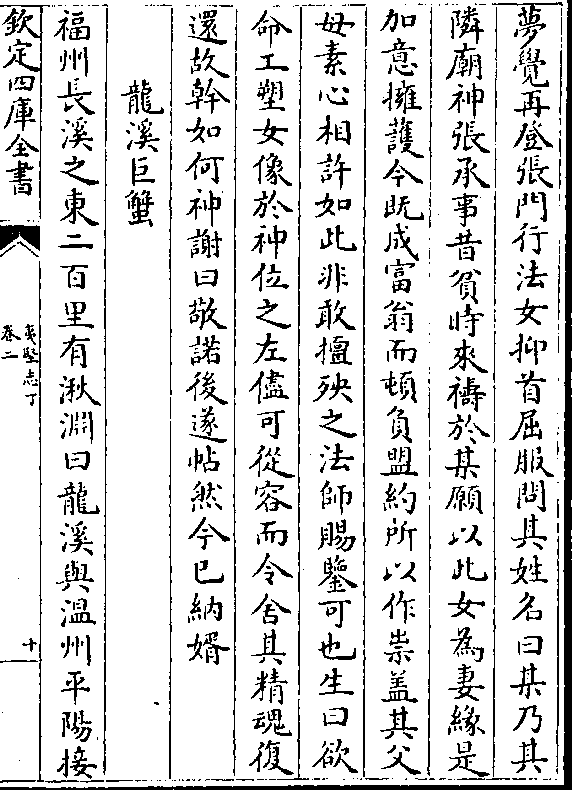 夢覺再登張門行法女抑首屈服問其姓名曰某乃其
隣廟神張承事昔貧時來禱於某願以此女為妻緣是
加意擁護今既成富翁而頓負盟約所以作祟盖其父
母素心相許如此非敢擅殃之法師賜鑒可也生曰欲
命工塑女像於神位之左儘可從容而令舍其精魂復
還故幹如何神謝曰敬諾後遂帖然今已納婿
龍溪巨蟹
福州長溪之東二百里有湫淵曰龍溪與温州平陽接
欽定四庫全書
夷堅志丁
卷二
十